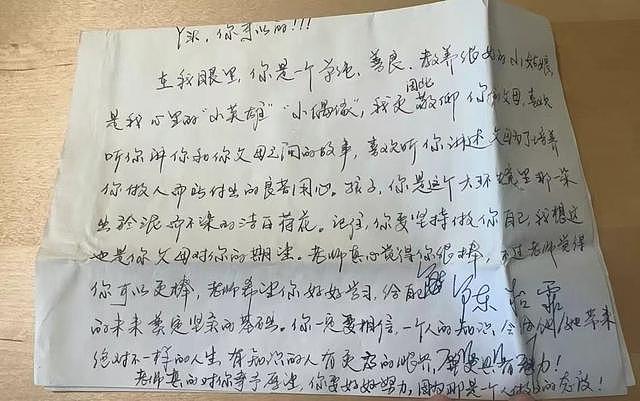 你可以的!!!
在我眼里,你是一个单纯、善良、教养很好的小姑娘
是我心里的“小英雄”“小偶像”,我更因此敬仰你的父母,喜欢
听你讲你和你父母之间的故事,喜欢听你讲述父母为了培养
你做人而所付出的良苦用心。孩子,你是这个大环境里那一朵
出淤泥而不染的洁白荷花。记住,你要坚持做你自己,我想这
也是你父母对你的期望。老师真心觉得你很棒,不过老师觉得
你可以更棒,老师希望你好好学习,给自己
的未来奠定坚实的基础。你一定要相信,一个人的知识,会给他/她带来
绝对不一样的人生,有知识的人有更高的眼界,
老师真的对你寄予厚望,你要好好努力,因为那是一个人做